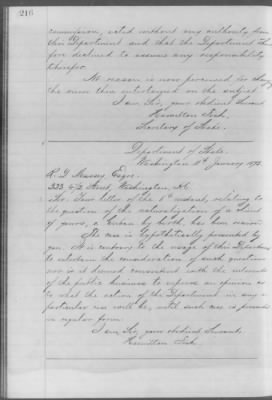 216
commission, acted without any authority from
this Department and that the Department there
fore declined to assume any responsibility
therefor.
No reason is now perceived for chang
the views then entertained on the subject
I am, Sir, your obedient Servant
Hamilton Fish,
Secretary of State.
Department of State.
Washington 11th January 1873.
R. D. Mussey Esqre.
333 4 1/2 Street, Washington, D.C.
Sir: Your letter of the 6th instant, relating to
the question of the naturalization of a client
of yours, a Cuban by birth, has been received
The case is hypothetically presented by
you. It is contrary to the usage of this Department
to entertain the consideration of such questions
nor is it deemed consistent with the interests
of the public business to express an opinion as
to what the action of the Department in any
particular case will be, until such case is presented
in regular form.
I am, Sir, your obedient Servant,
Hamilton Fish.